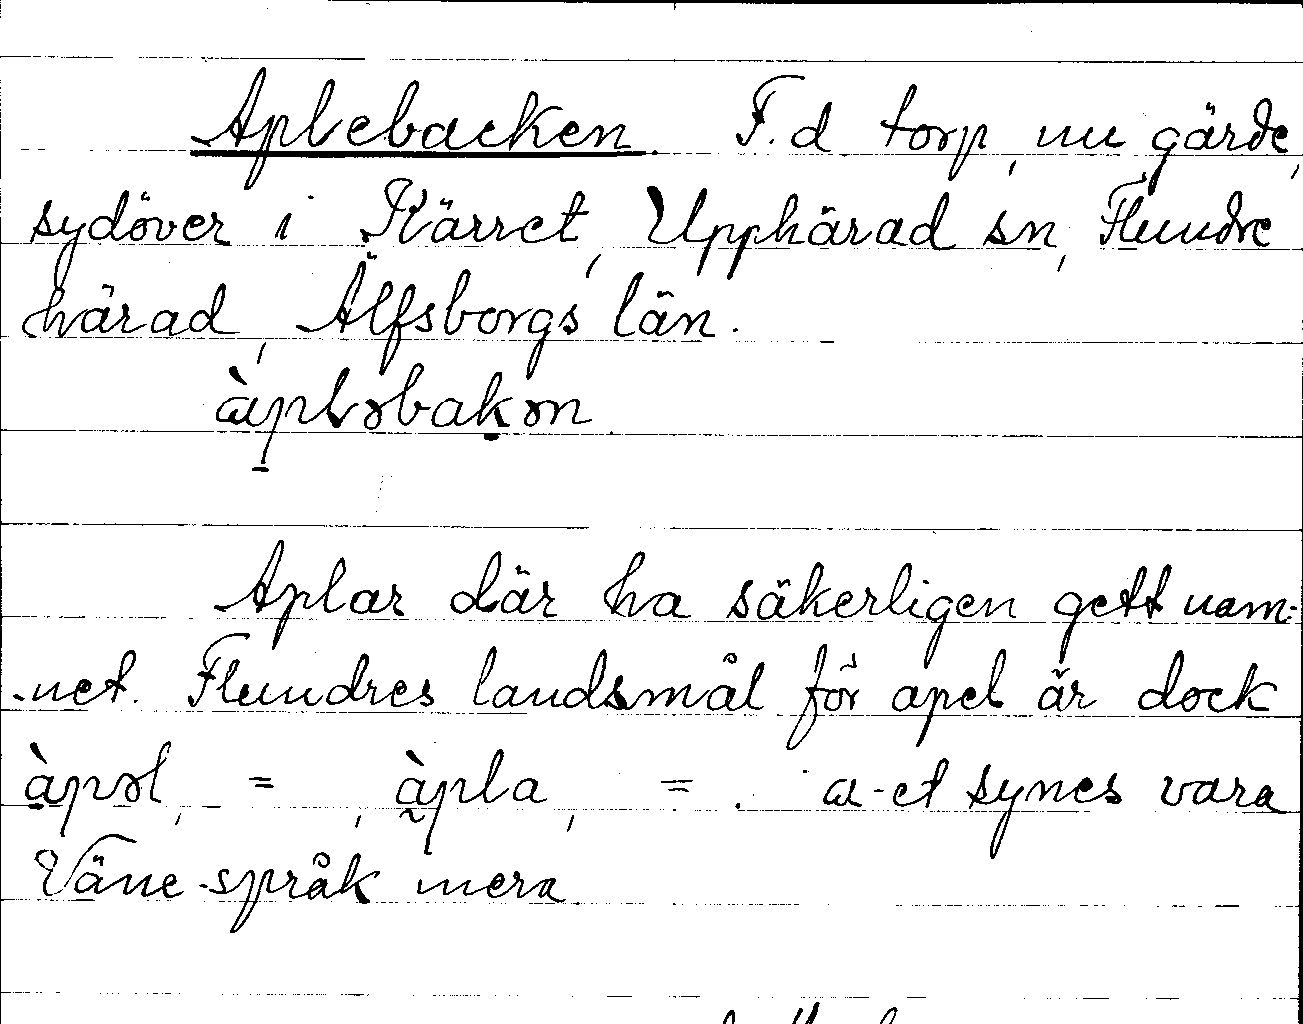 Aplebacken. F.d torp, nu gärde,
sydöver i Kärret, Upphärad sn, Flundre
härad, Älfsborgs län.
àpləbakən
Aplar där ha säkerligen gett nam-
-net. Flundres landsmål för apel är dock
àpəl, =, àpla, = . a-et synes vara
Väne-språk mera